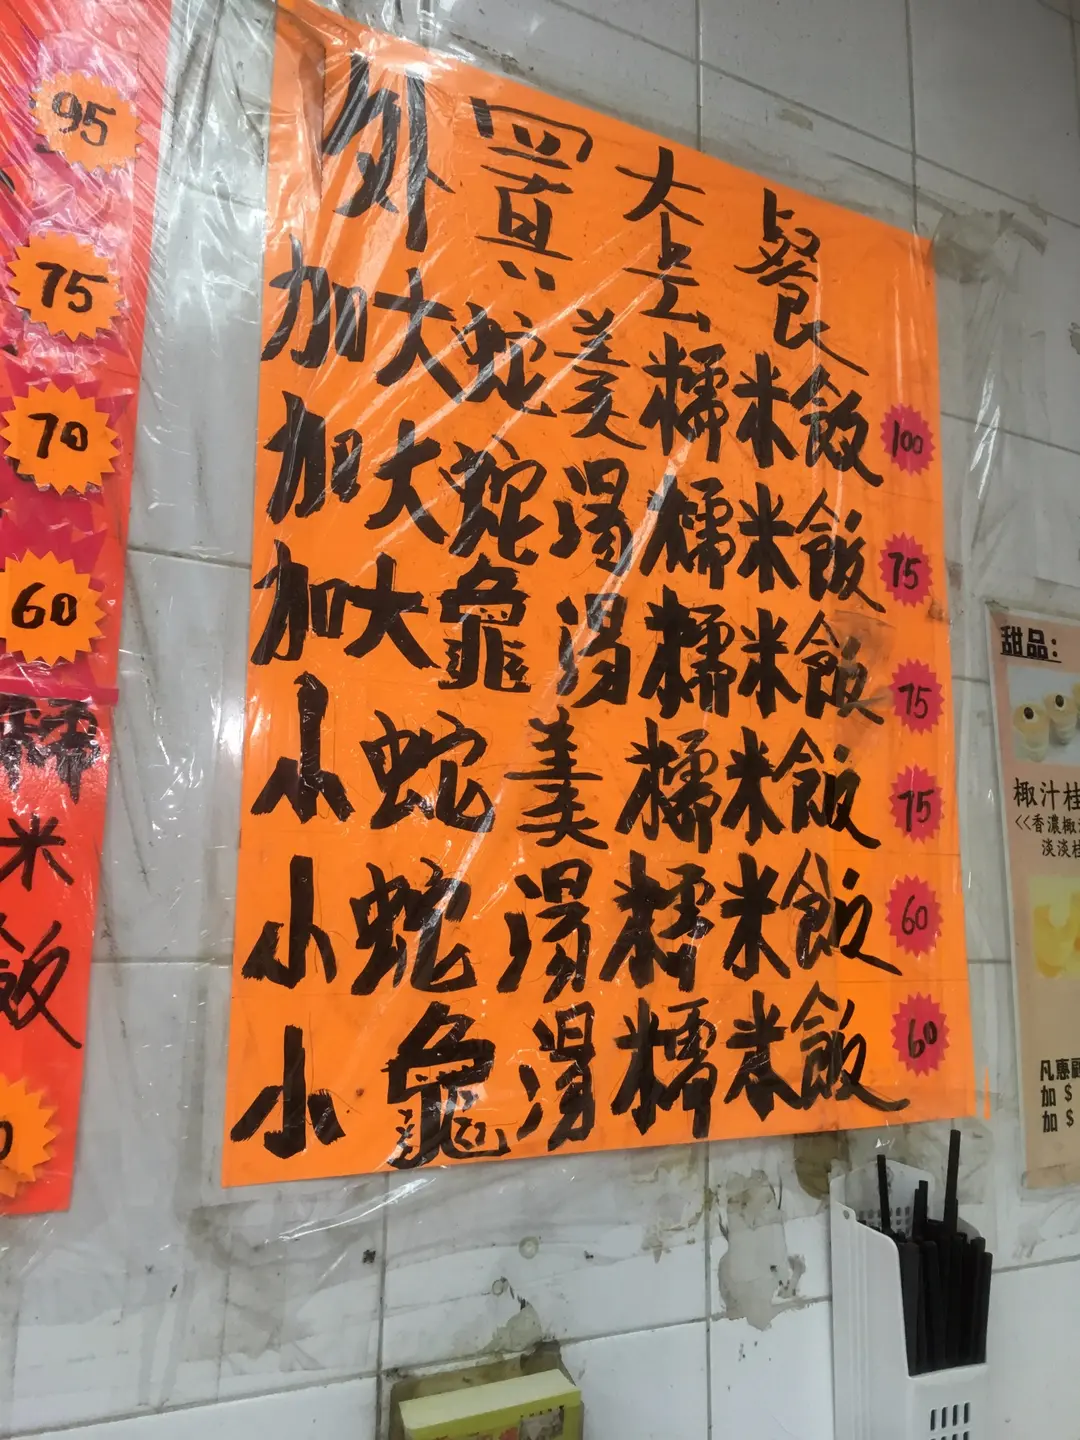 95
75
70
60
米
飯
外買套餐
加大蛇羹糯米飯 100
加大蛇湯糯米飯 75
加大龜湯糯米飯 75
小蛇羹糯米飯 75
小蛇湯糯米飯 60
小龜湯糯米飯 60
甜品:
椰汁桂
<<香濃椰
淡淡桂
凡惠顧
加 $
加 $